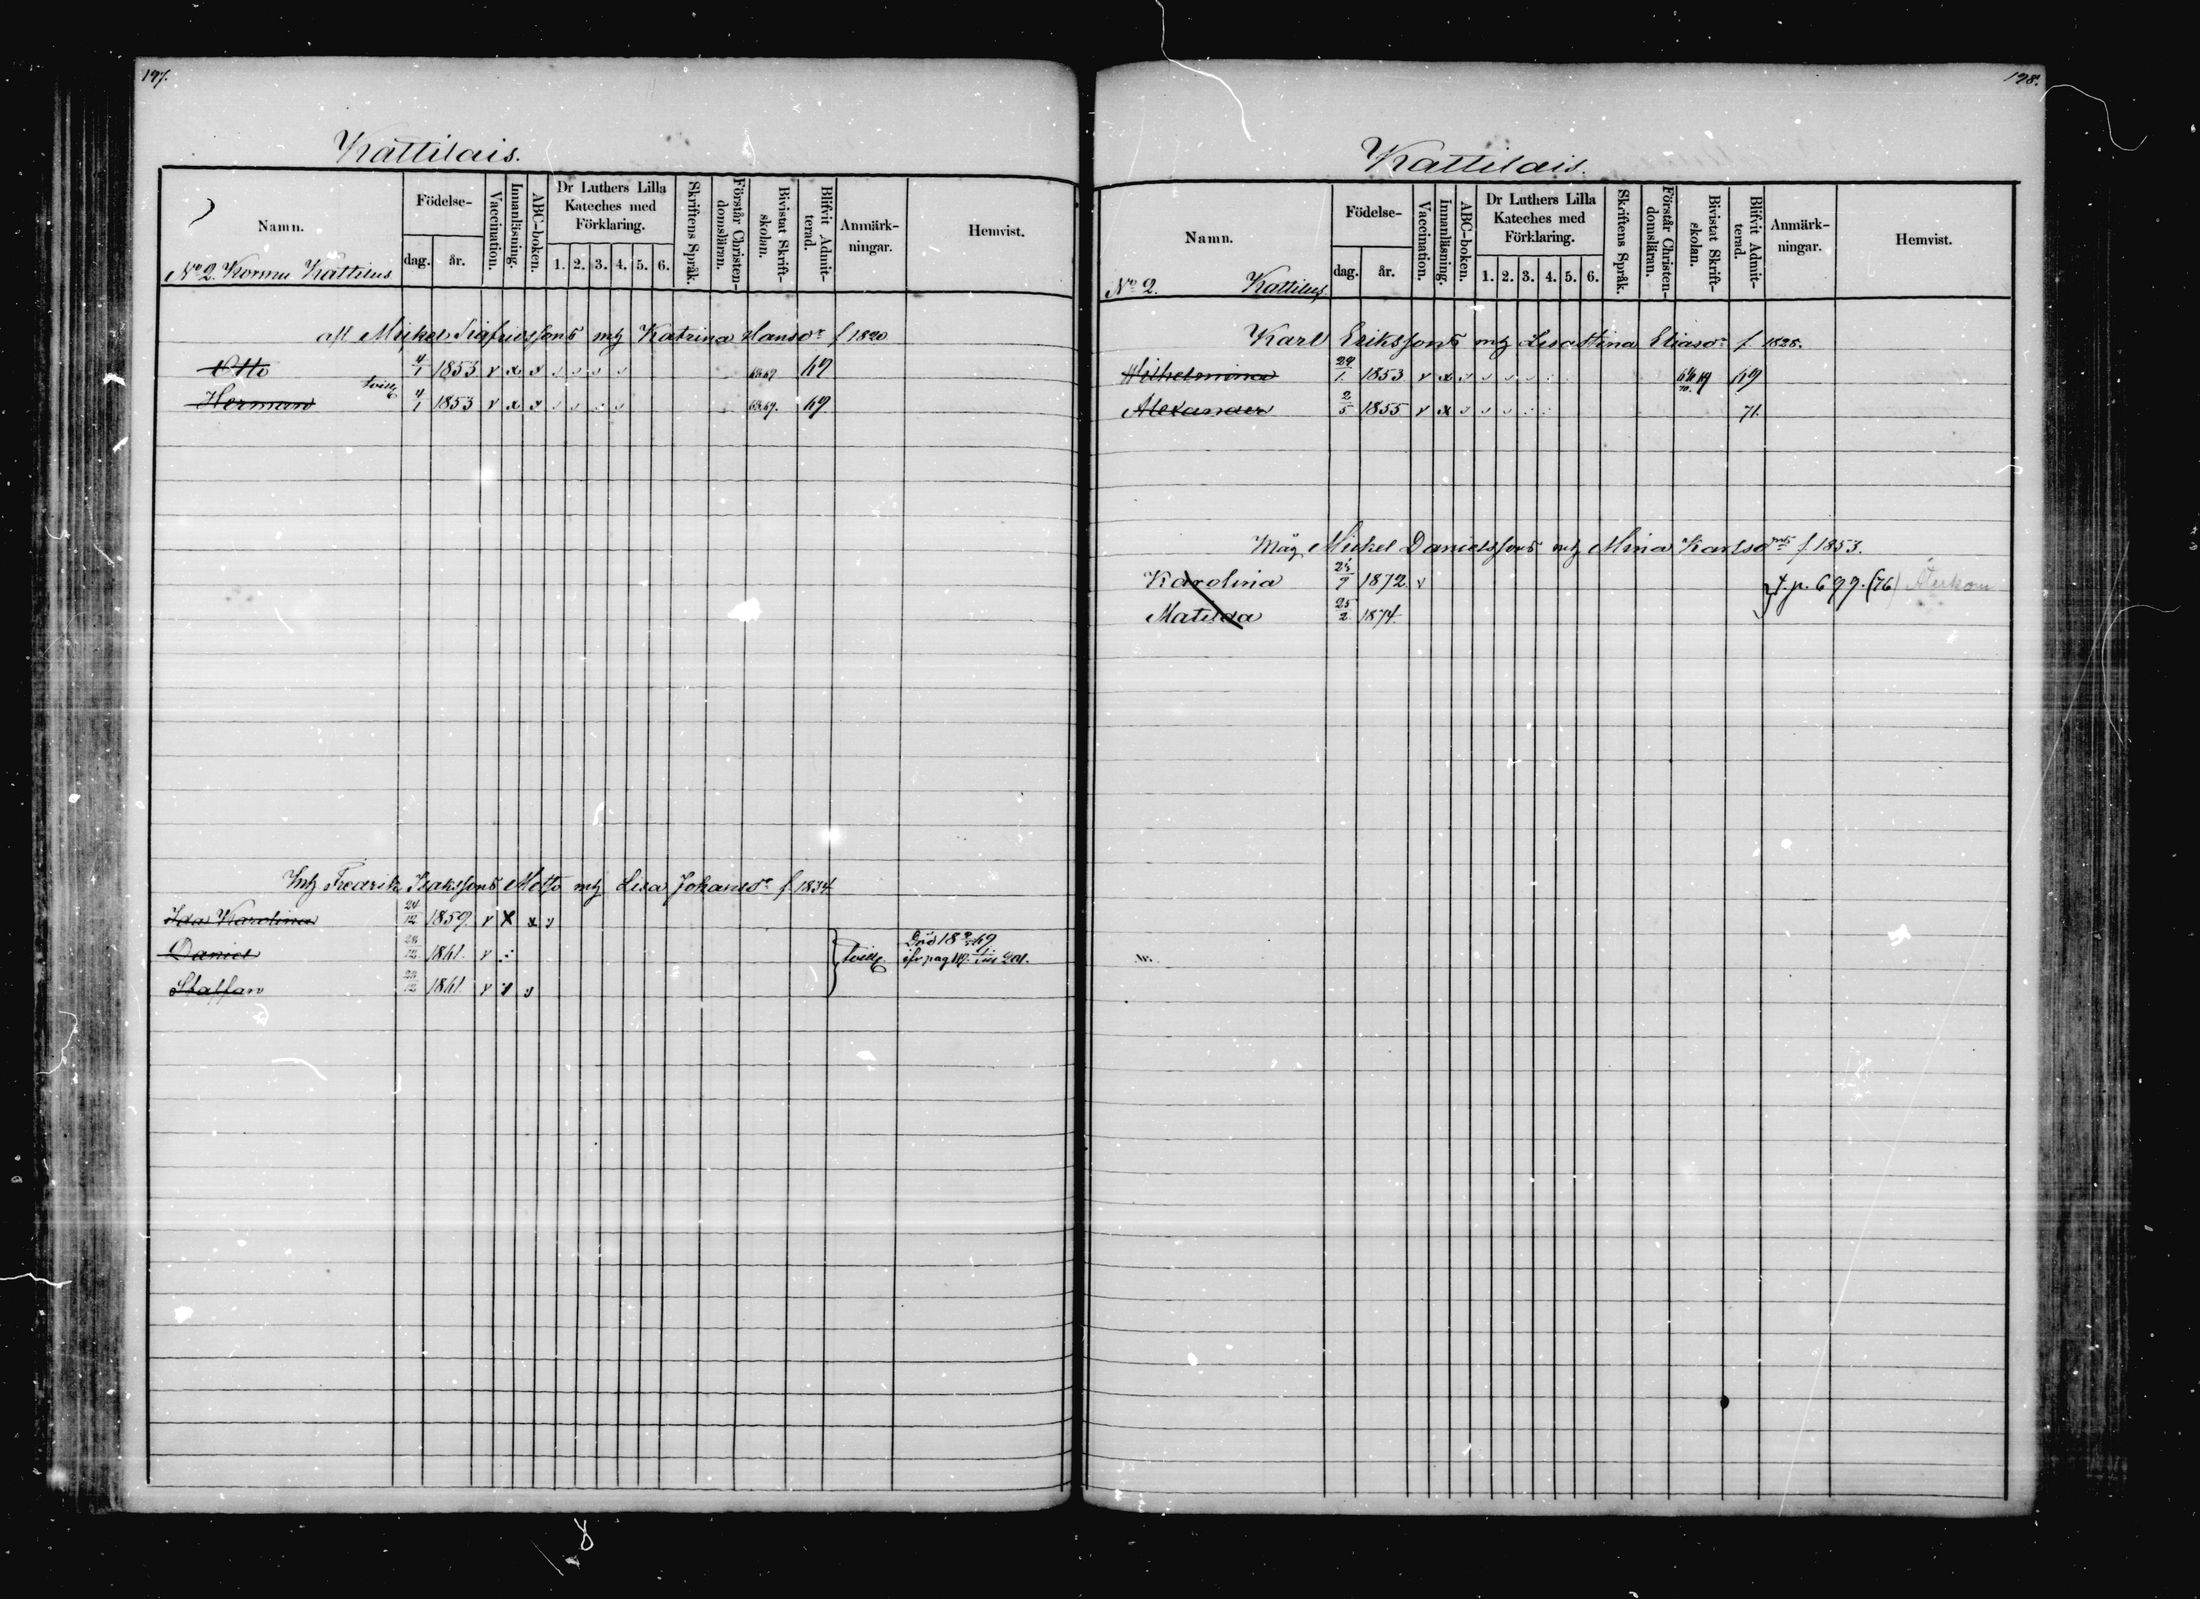 197.
Kattilais.
Namn.
Födelse-
dag.
år.
Vaccination.
Innanläsning.
ABC-boken.
Dr Luthers Lilla
Kateches med
Förklaring.
1. 2. 3. 4. 5. 6.
Skriftens Språk.
Förstår Christen-
domsläran.
Bivistat Skrift-
skolan.
Blifvit Admit-
terad.
Anmärk-
ningar.
Hemvist.
No 2. Kormu Kattilus
afl Mickel Sigfridssons mtz Katrina Hansdr f 1820
Otto 4/1 1853 v x 69
Herman tvill 4/1 1853 v x 69
Fredrik Isakssons mtz Lisa Johansdr f 1834
Ida Karolina 24/12 1859. v x x
Daniel 28/12 1861. v tvill. Död 69
Staffan 28/12 1861. v
198.
Kattilais.
Namn.
Födelse-
dag.
år.
Vaccination.
Innanläsning.
ABC-boken.
Dr Luthers Lilla
Kateches med
Förklaring.
1. 2. 3. 4. 5. 6.
Skriftens Språk.
Förstår Christen-
domsläran.
Bivistat Skrift-
skolan.
Blifvit Admit-
terad.
Anmärk-
ningar.
Hemvist.
No 2. Kattilus
Karl Erikssons mtz Lisa Stina Eliasdr f 1828.
Wilhelmina 29/1 1853 v x 69
Alexander 2/5 1855 v x 71.
Måg Mickel Danielssons mtz Mina Karlsd f 1853.
Karolina 1872 v t. p. 699. (76)
Matilda 25/2 1874.